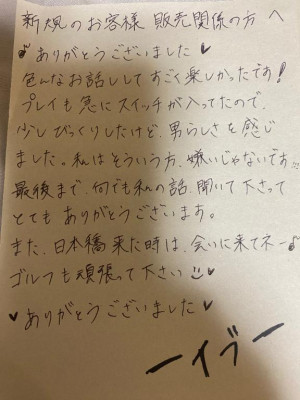 新規のお客様 販売関係の方へ
♪ありがとうございました♥
色んなお話しして すごく楽しかったです!
プレイも急にスイッチが入ってたので、
少しびっくりしたけど、男らしさを感じ
ました。私はそういう方、嫌いじゃないです…
最後まで、何でも私の話、聞いて下さって
とても ありがとうございます。
また、日本橋 来た時は、会いに来てネー♪
ゴルフも頑張って下さい☺♥
♥ありがとうございました♥
ーイブー